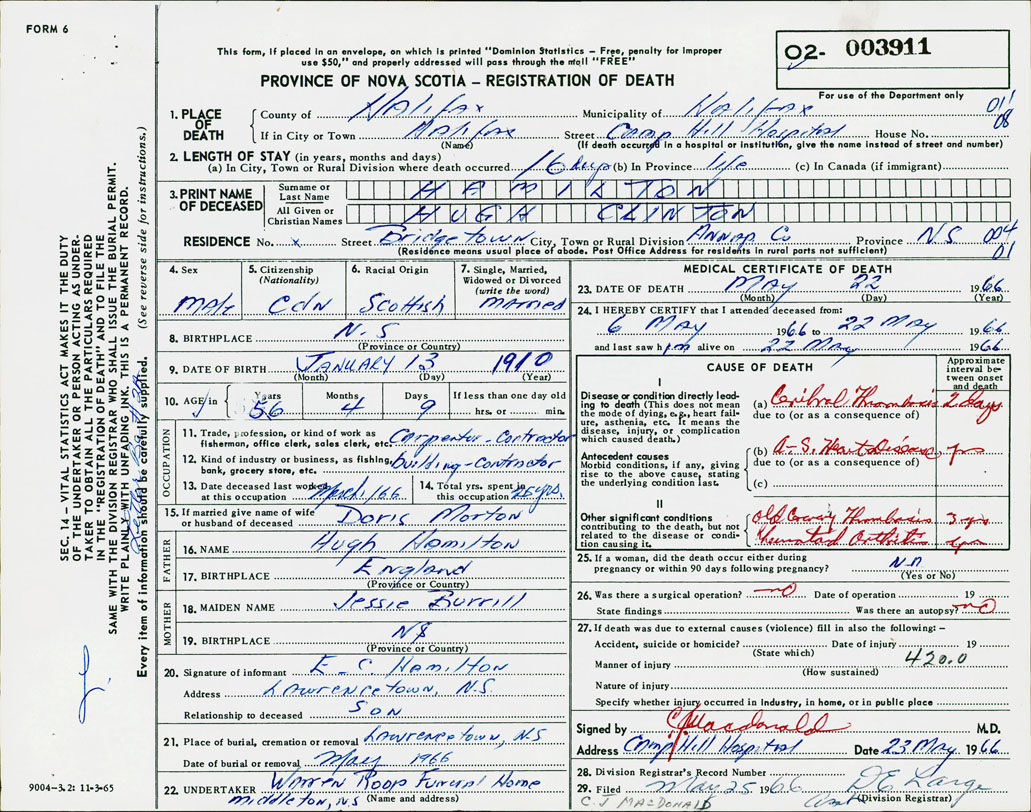 FORM 6
This form, if placed in an envelope, on which is printed "Dominion Statistics – Free, penalty for improper
use $50," and properly addressed will pass through the mail "FREE"
PROVINCE OF NOVA SCOTIA – REGISTRATION OF DEATH
02- 003911
For use of the Department only
1. PLACE OF DEATH
County of Halifax Municipality of Halifax 011
If in City or Town Halifax Street Camp Hill Hospital House No. 08
(Name) (If death occurred in a hospital or institution, give the name instead of street and number)
2. LENGTH OF STAY (in years, months and days)
(a) In City, Town or Rural Division where death occurred 16 days (b) In Province life (c) In Canada (if immigrant)
3. PRINT NAME OF DECEASED
Surname or Last Name HAMILTON
All Given or Christian Names HUGH CLINTON
RESIDENCE No. x Street Bridgetown City, Town or Rural Division Annap Co Province N.S 004
(Residence means usual place of abode. Post Office Address for residents in rural parts not sufficient) 01
4. Sex Male
5. Citizenship (Nationality) Cdn
6. Racial Origin Scottish
7. Single, Married, Widowed or Divorced (write the word) Married
8. BIRTHPLACE N.S
(Province or Country)
9. DATE OF BIRTH January 13 1910
(Month) (Day) (Year)
10. AGE in Years 56 Months 4 Days 9 If less than one day old hrs. or min.
OCCUPATION
11. Trade, profession, or kind of work as fisherman, office clerk, sales clerk, etc. Carpenter-Contractor
12. Kind of industry or business, as fishing, bank, grocery store, etc. building-contractor
13. Date deceased last worked at this occupation March/66
14. Total yrs. spent in this occupation 25 yrs.
15. If married give name of wife or husband of deceased Doris Morton
FATHER
16. NAME Hugh Hamilton
17. BIRTHPLACE England
(Province or Country)
MOTHER
18. MAIDEN NAME Jessie Burrill
19. BIRTHPLACE NS
(Province or Country)
20. Signature of informant E-C Hamilton
Address Lawrencetown, N.S.
Relationship to deceased Son
21. Place of burial, cremation or removal Lawrencetown, N.S
Date of burial or removal May 1966
22. UNDERTAKER Warren Roop Funeral Home
Middleton, N.S (Name and address)
MEDICAL CERTIFICATE OF DEATH
23. DATE OF DEATH May 22 1966
(Month) (Day) (Year)
24. I HEREBY CERTIFY that I attended deceased from:
6 May 1966 to 22 May 1966
and last saw him alive on 22 May 1966
CAUSE OF DEATH
Approximate interval between onset and death
I
Disease or condition directly leading to death (This does not mean the mode of dying, e.g., heart failure, asthenia, etc. It means the disease, injury, or complication which caused death.)
(a) Cerebral Thrombosis 2 days
due to (or as a consequence of)
Antecedent causes
Morbid conditions, if any, giving rise to the above cause, stating the underlying condition last.
(b) A-S. Heart Disease yrs
due to (or as a consequence of)
(c)
II
Other significant conditions contributing to the death, but not related to the disease or condition causing it.
Old Coronary Thrombosis 3 yrs
Rheumatoid Arthritis yrs
25. If a woman, did the death occur either during pregnancy or within 90 days following pregnancy?
(Yes or No)
26. Was there a surgical operation? no Date of operation 19
State findings Was there an autopsy? no
27. If death was due to external causes (violence) fill in also the following: –
Accident, suicide or homicide? Date of injury 19
(State which) 420.0
Manner of injury
(How sustained)
Nature of injury
Specify whether injury occurred in industry, in home, or in public place
Signed by CJ Macdonald M.D.
Address Camp Hill Hospital Date 23 May 1966
28. Division Registrar's Record Number
29. Filed May 25 1966 D E Large
(Division Registrar)
C.J MACDONALD
SEC. 14 – VITAL STATISTICS ACT MAKES IT THE DUTY
OF THE UNDERTAKER OR PERSON ACTING AS UNDER-
TAKER TO OBTAIN ALL THE PARTICULARS REQUIRED
IN THE "REGISTRATION OF DEATH" AND TO FILE THE
SAME WITH THE DIVISION REGISTRAR WHO SHALL ISSUE THE BURIAL PERMIT.
WRITE PLAINLY WITH UNFADING INK. THIS IS A PERMANENT RECORD.
Every item of information should be carefully supplied. (See reverse side for instructions.)
9004-3.2: 11-3-65